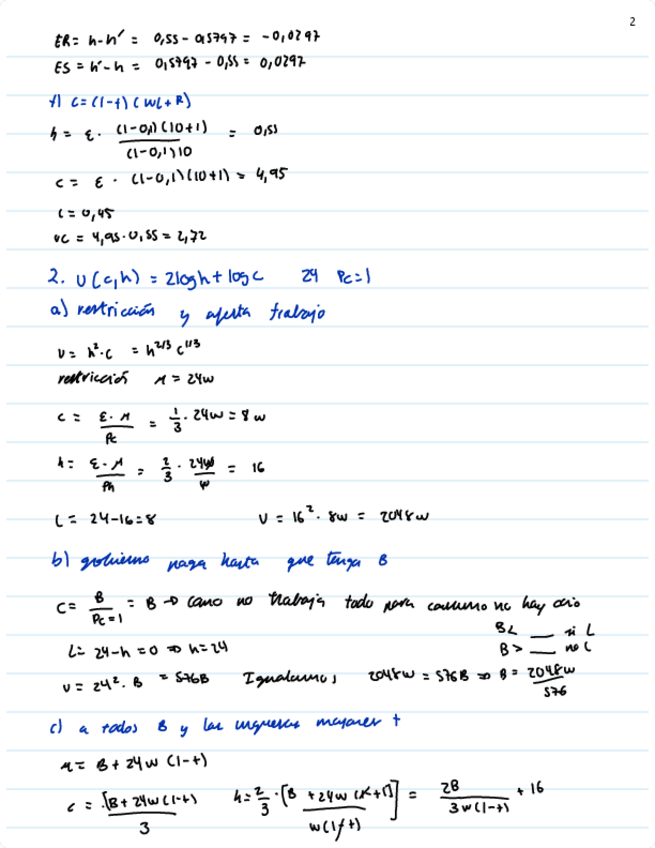 2
ER = h-h' = 0,55 - 0,5797 = -0,0297
ES = h'-h = 0,5797 - 0,55 = 0,0297
f) c=(1-t)(wL+R)
h = ε · (1-0,1)(10+1) / (1-0,1)10 = 0,55
c = ε · (1-0,1)(10+1) = 4,95
L = 0,45
uc = 4,95 · 0,55 = 2,72
2. U(c,h) = 2logh + logc 24 Pc=1
a) restricción y oferta trabajo
U = h²·c = h^2/3 c^1/3
restricción M = 24w
c = ε·M / Pc = 1/3 · 24w = 8w
h = ε·M / Ph = 2/3 · 24w / w = 16
L = 24-16=8 U = 16² · 8w = 2048w
b) gobierno paga hasta que tenga B
c = B / Pc=1 = B → como no trabaja todo para consumo no hay ocio
B< __ si L
L = 24-h = 0 ⇒ h=24 B> __ no L
U = 24² · B = 576B Igualamos; 2048w = 576B ⇒ B = 2048w / 576
c) a todos B y los ingresos mayores t
M = B + 24w (1-t)
c = [B+24w(1-t) / 3 h = 2/3 · [B + 24w (1-t)] / w(1-t) = 2B / 3w(1-t) + 16